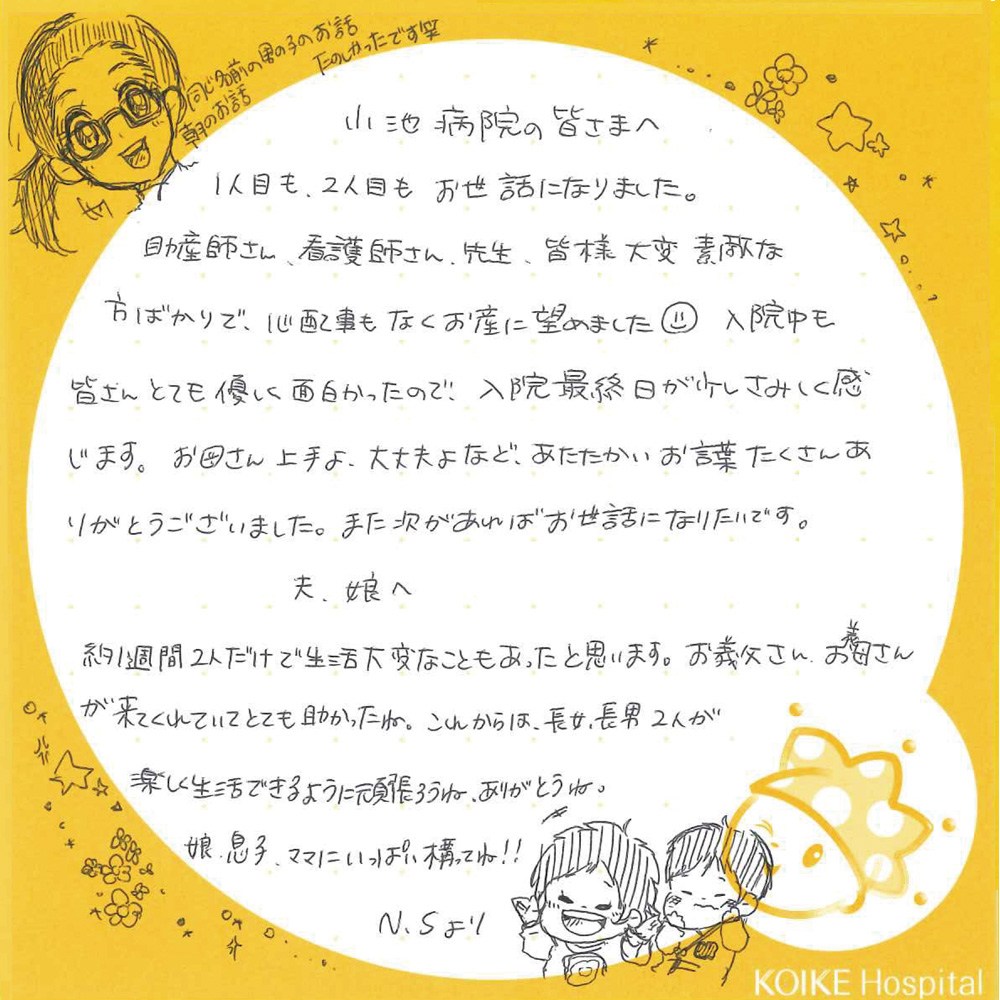 同じ名前の男の子のお話
たのしかったです笑
朝のお話
小池病院の皆さまへ
1人目も、2人目も お世話になりました。
助産師さん、看護師さん、先生、皆様大変素敵な
方ばかりで、心配事もなくお産に望めました 入院中も
皆さんとても優しく面白かったので、入院最終日が少しさみしく感
じます。お母さん上手よ、大丈夫よなど、あたたかいお言葉たくさんあ
りがとうございました。また次があればお世話になりたいです。
夫、娘へ
約1週間2人だけで生活大変なこともあったと思います。お義父さん、お義母さん
が来てくれていてとても助かったね。これからは、長女、長男2人が
楽しく生活できるように頑張ろうね、ありがとうね。
娘、息子、ママにいっぱい構ってね!!
N.Sより
KOIKE Hospital